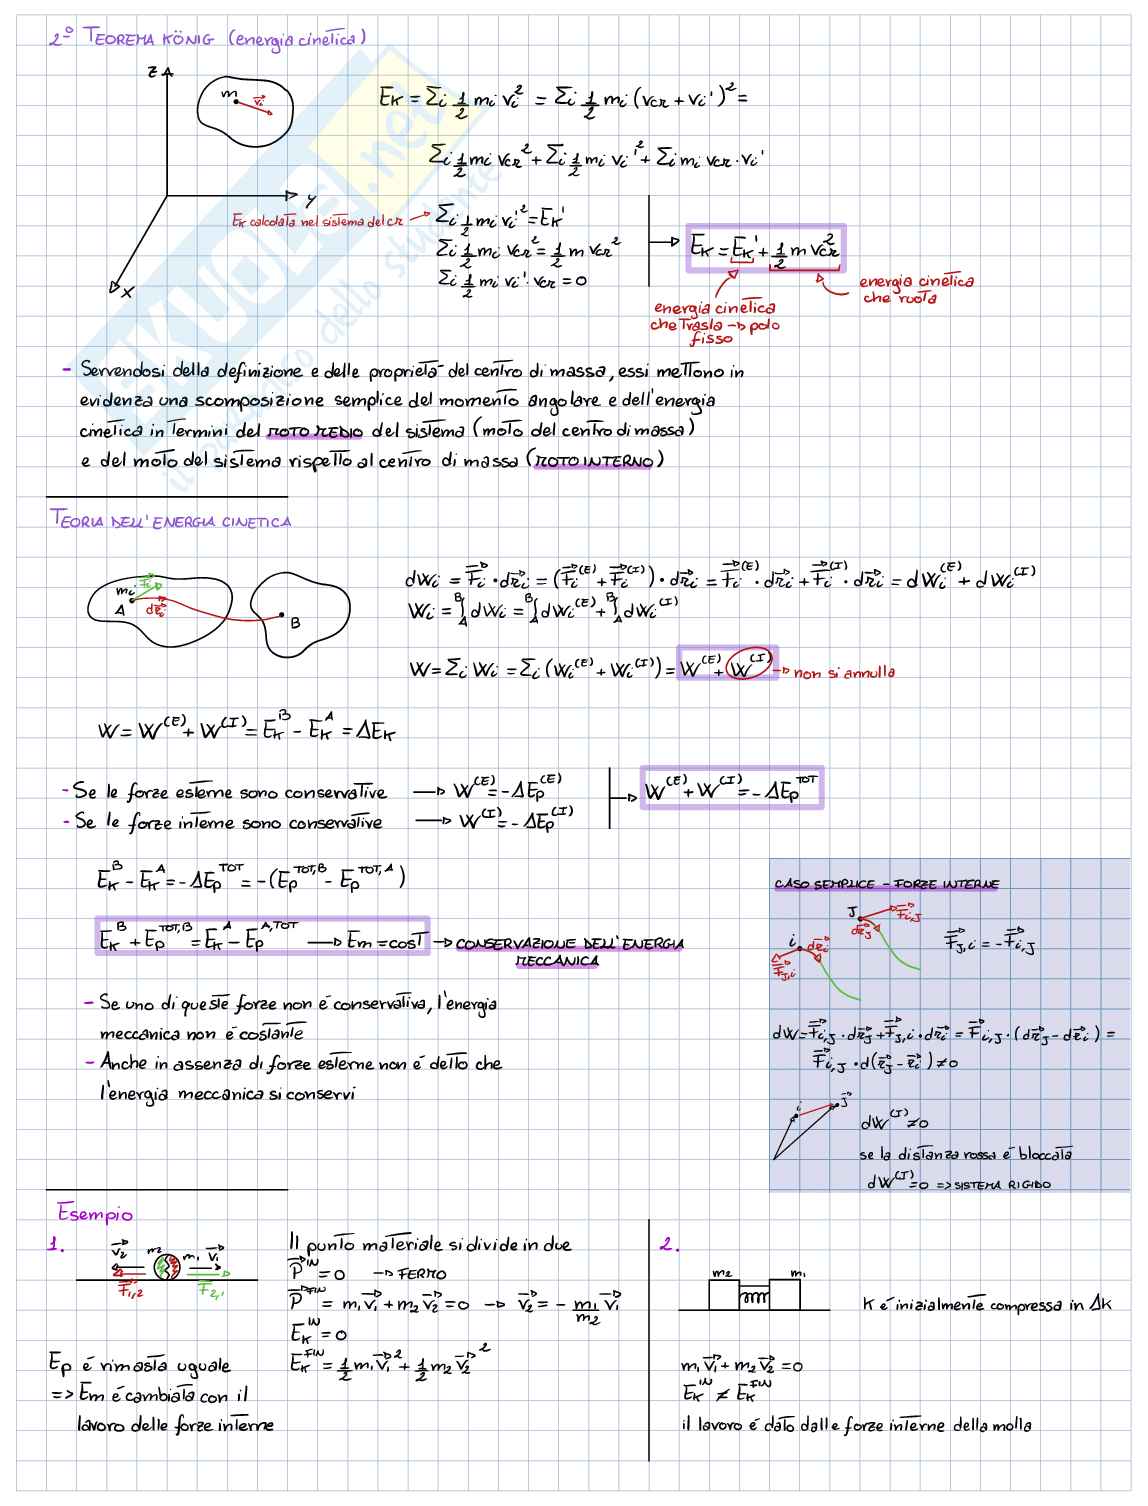 2° TEOREMA KÖNIG (energia cinetica)
z
m
v⃗ᵢ
y
x
E_K = Σᵢ 1/2 mᵢ vᵢ² = Σᵢ 1/2 mᵢ (v_CR + vᵢ')² =
Σᵢ 1/2 mᵢ v_CR² + Σᵢ 1/2 mᵢ vᵢ'² + Σᵢ mᵢ v_CR · vᵢ'
E_K calcolata nel sistema del CR
Σᵢ 1/2 mᵢ vᵢ'² = E_K'
Σᵢ 1/2 mᵢ v_CR² = 1/2 m v_CR²
Σᵢ 1/2 mᵢ vᵢ' · v_CR = 0
E_K = E_K' + 1/2 m v_CR²
energia cinetica che trasla → polo fisso
energia cinetica che ruota
- Servendosi della definizione e delle proprietà del centro di massa, essi mettono in
evidenza una scomposizione semplice del momento angolare e dell'energia
cinetica in termini del MOTO MEDIO del sistema (moto del centro di massa)
e del moto del sistema rispetto al centro di massa (MOTO INTERNO)
TEORIA DELL'ENERGIA CINETICA
mᵢ
F⃗ᵢ
A
dr⃗ᵢ
B
dWᵢ = F⃗ᵢ · dr⃗ᵢ = (F⃗ᵢ^(E) + F⃗ᵢ^(I)) · dr⃗ᵢ = F⃗ᵢ^(E) · dr⃗ᵢ + F⃗ᵢ^(I) · dr⃗ᵢ = dWᵢ^(E) + dWᵢ^(I)
Wᵢ = ∫_A^B dWᵢ = ∫_A^B dWᵢ^(E) + ∫_A^B dWᵢ^(I)
W = Σᵢ Wᵢ = Σᵢ (Wᵢ^(E) + Wᵢ^(I)) = W^(E) + W^(I) → non si annulla
W = W^(E) + W^(I) = E_K^B - E_K^A = ΔE_K
- Se le forze esterne sono conservative → W^(E) = -ΔE_P^(E)
- Se le forze interne sono conservative → W^(I) = -ΔE_P^(I)
→ W^(E) + W^(I) = -ΔE_P^TOT
E_K^B - E_K^A = -ΔE_P^TOT = -(E_P^TOT,B - E_P^TOT,A)
E_K^B + E_P^TOT,B = E_K^A - E_P^A,TOT → Em = cost → CONSERVAZIONE DELL'ENERGIA
MECCANICA
- Se uno di queste forze non é conservativa, l'energia
meccanica non é costante
- Anche in assenza di forze esterne non é detto che
l'energia meccanica si conservi
CASO SEMPLICE - FORZE INTERNE
J
F⃗i,J
dr⃗J
i
dr⃗i
F⃗J,i
F⃗J,i = -F⃗i,J
dW = F⃗i,J · dr⃗J + F⃗J,i · dr⃗i = F⃗i,J · (dr⃗J - dr⃗i) =
F⃗i,J · d(r⃗J - r⃗i) ≠ 0
i
J
dW^(I) ≠ 0
se la distanza rossa é bloccata
dW^(I) = 0 => SISTEMA RIGIDO
Esempio
1.
v⃗₂
m₂
m₁
v⃗₁
F⃗1,2
F⃗2,1
Il punto materiale si divide in due
P⃗^IN = 0 → FERMO
P⃗^FIN = m₁v⃗₁ + m₂v⃗₂ = 0 → v⃗₂ = - m₁/m₂ v⃗₁
E_K^IN = 0
E_K^FIN = 1/2 m₁v⃗₁² + 1/2 m₂v⃗₂²
Ep é rimasta uguale
=> Em é cambiata con il
lavoro delle forze interne
2.
m₂
m₁
K é inizialmente compressa in Δk
m₁v⃗₁ + m₂v⃗₂ = 0
E_K^IN ≠ E_K^FIN
il lavoro é dato dalle forze interne della molla
SKUOLA.net